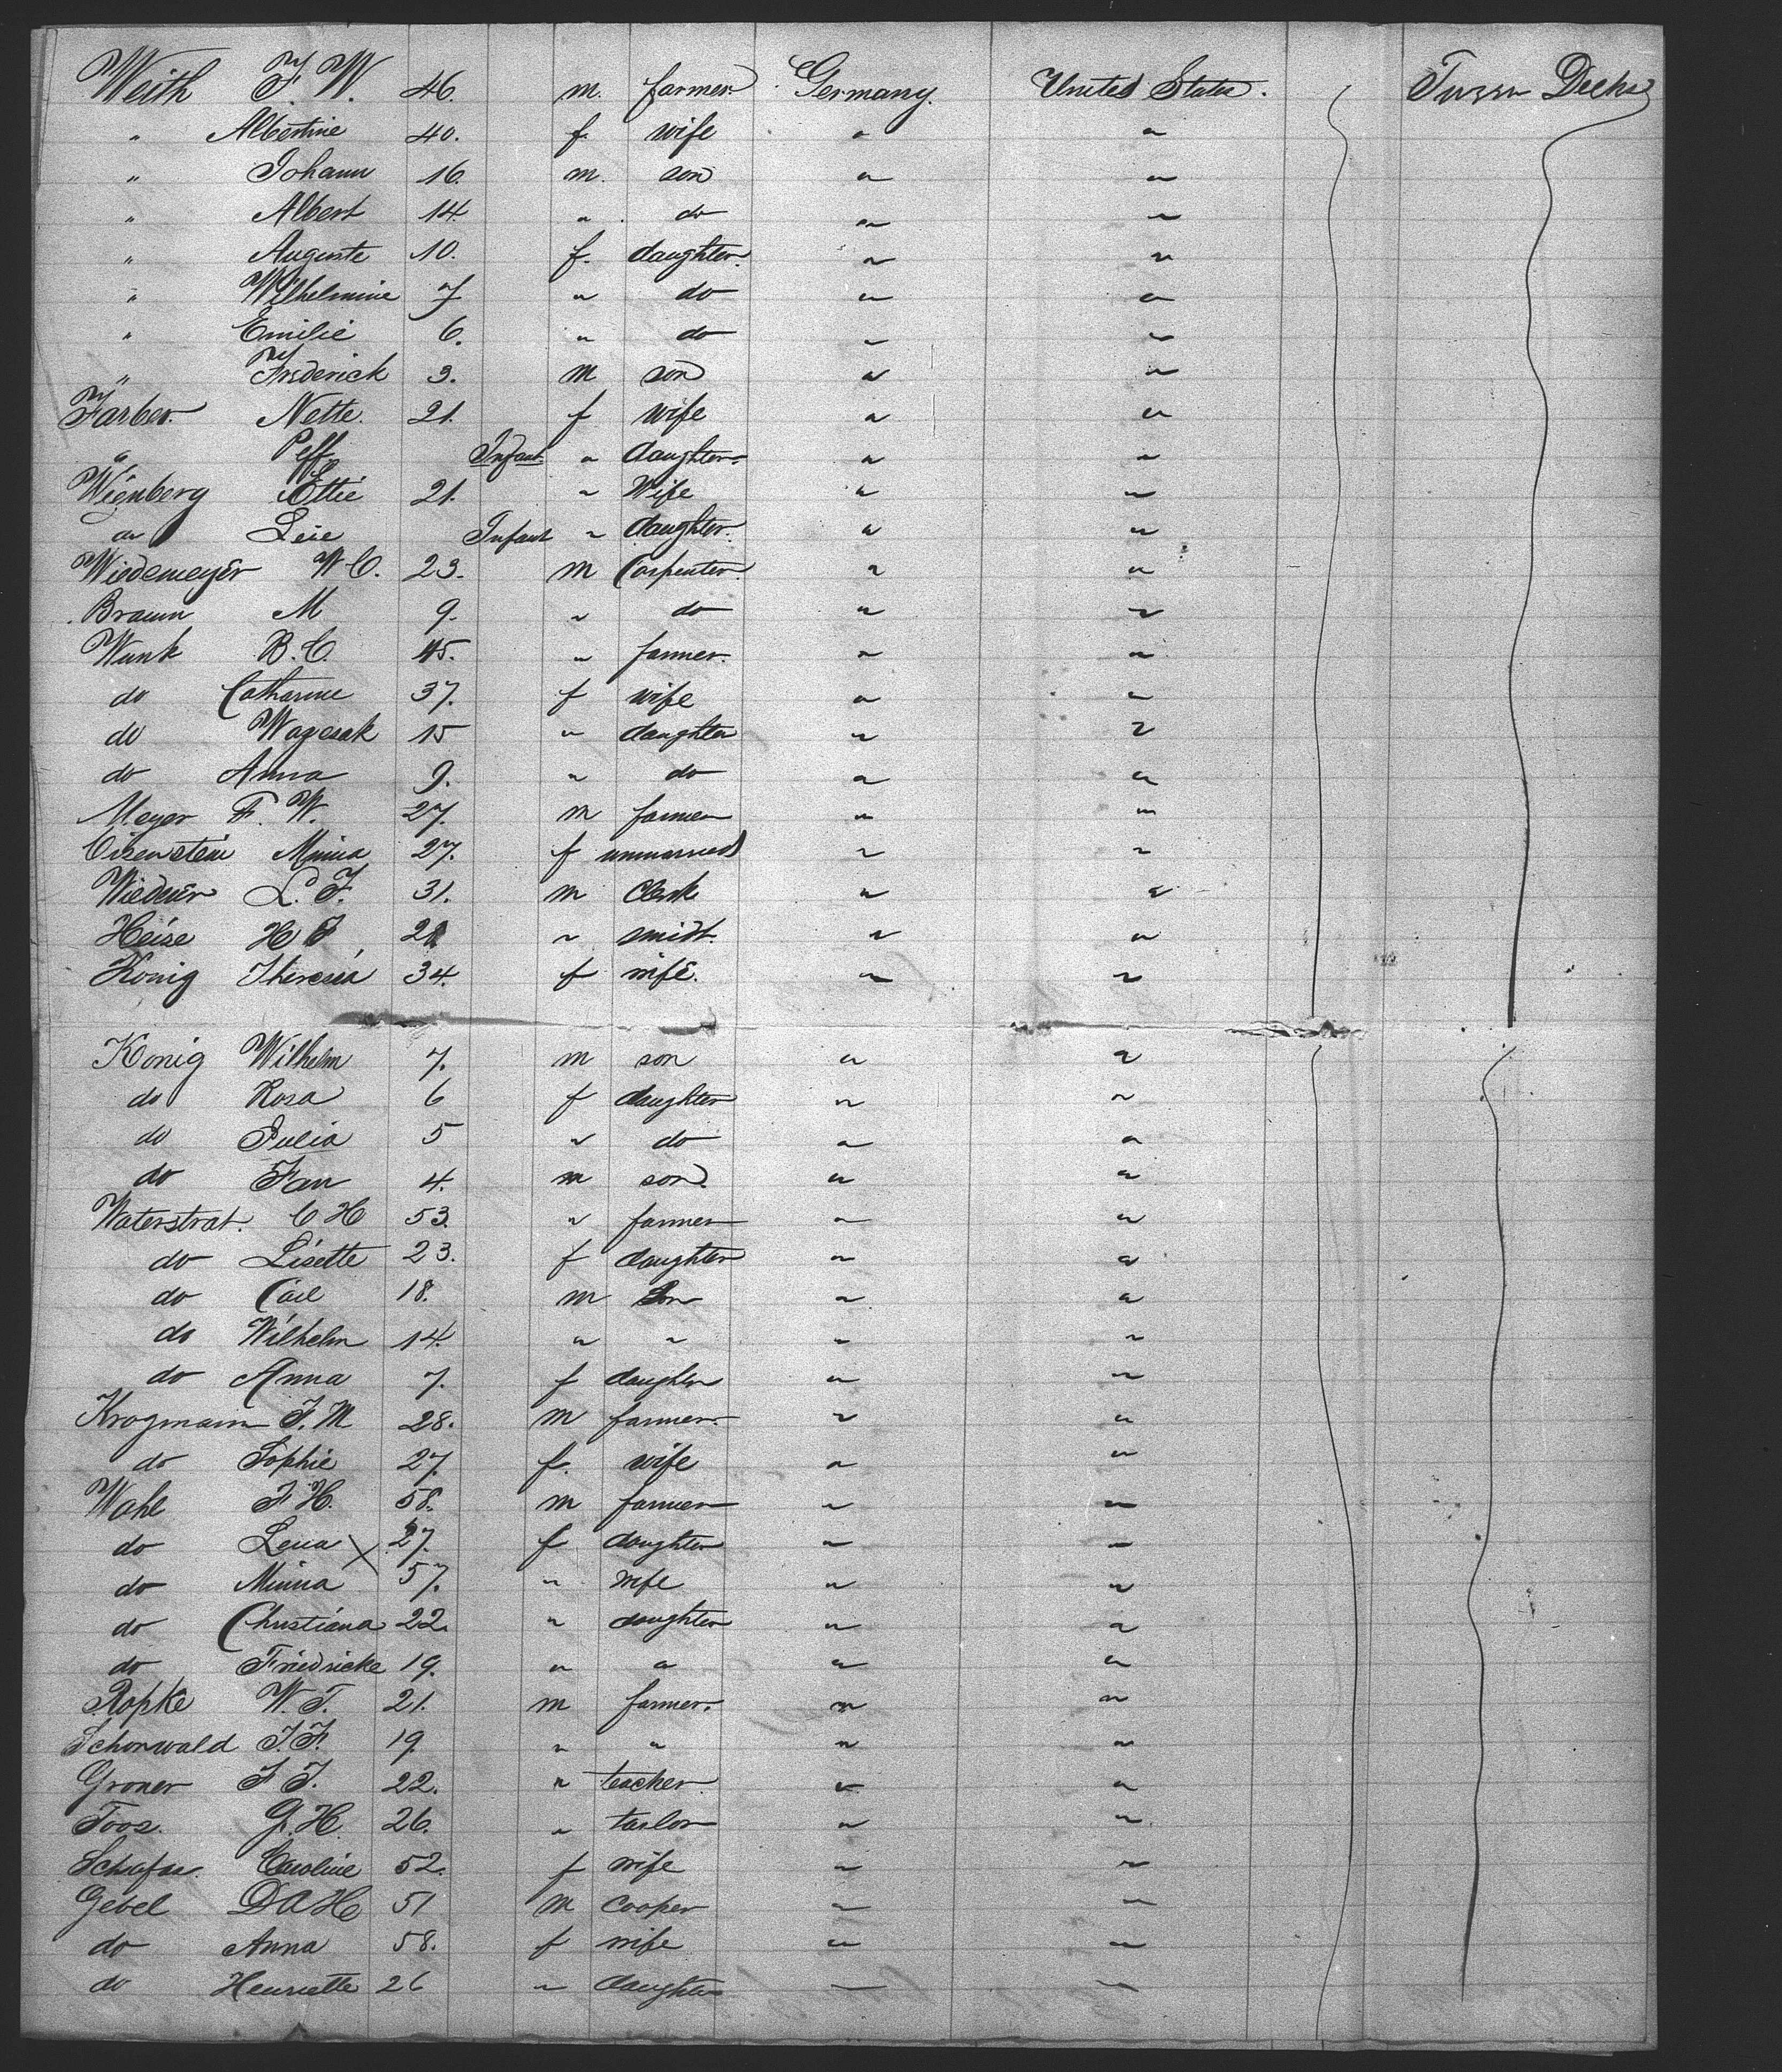 Weith F. W. 46. m. farmer Germany. United States. Tween Decks
" Albertine 40. f. wife " "
" Johann 16. m. son " "
" Albert 14 " do " "
" Auguste 10. f. daughter. " "
" Wilhelmine 7 " do " "
" Emilie 6. " do " "
" Frederick 3. m son " "
Farber. Nette. 21. f wife " "
" Peff Infant " daughter. " "
Wienberg Ettie 21. " Wife " "
" Leie Infant " daughter. " "
Wiedemeyer W. C. 23. m Carpenter. " "
Braun M 9. " do " "
Wunk B. C. 45. " farmer. " "
do Catharine 37. f wife " "
do 15 " daughter " "
do Anna 9. " do " "
Meyer F. W. 27. m farmer " "
Eisenstein Minna 27. f unmarried " "
L. F. 31. m Clerk " "
Heise H J 21 " smidt. " "
Konig Theresia 34. f wife. " "
Konig Wilhelm 7. m son " "
do Rosa 6 f daughter " "
do Julia 5 " do " "
do Fan 4. m son. " "
Waterstrat. C H 53. " farmer " "
do Lisette 23. f daughter " "
do Carl 18. m Son " "
do Wilhelm 14. " " " "
do Anna 7. f daughter " "
Krogmann J. M 28. m farmer. " "
do Sophie 27. f. wife " "
Wahl J H. 58. m farmer " "
do Lena X 27. f daughter " "
do Minna 57. " wife " "
do Christiana 22. " daughter " "
do Friedricke 19. " " " "
Ropke W. T. 21. m farmer. " "
Schonwald J. F. 19. " " " "
Groner F J. 22. " teacher. " "
Toos. G. H. 26. " tailor " "
Schafer. Caroline 52. f wife " "
Gebel D A H 51 m Cooper " "
do Anna 58. f wife " "
do Henriette 26 " daughter " "